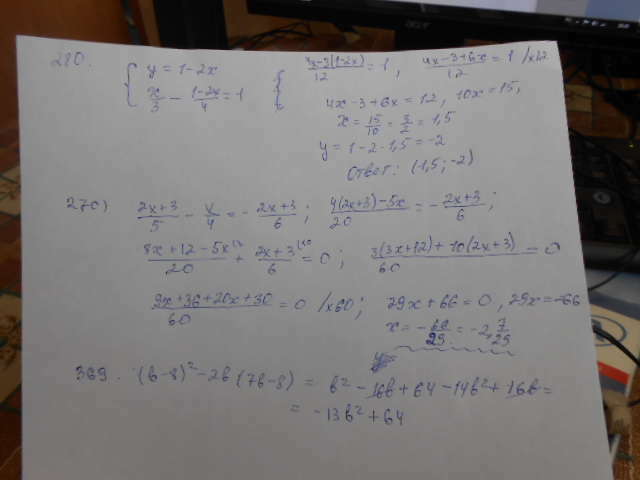 280. { y = 1-2x { (4x-3(1-2x))/12 = 1, (4x-3+6x)/12 = 1 /x12
x/3 - (1-2x)/4 = 1 4x-3+6x = 12, 10x = 15,
x = 15/10 = 3/2 = 1,5
y = 1-2·1,5 = -2
Ответ: (1,5; -2)
270) (2x+3)/5 - x/4 = - (2x+3)/6; (4(2x+3)-5x)/20 = - (2x+3)/6;
(8x+12-5x)/20 + (2x+3)/6 = 0; (3(3x+12)+10(2x+3))/60 = 0
(9x+36+20x+30)/60 = 0 /x60; 29x+66 = 0, 29x = -66
x = - 66/29 = -2, 7/29
369. (b-8)² - 2b(7b-8) = b² - 16b + 64 - 14b² + 16b =
= -13b² + 64
acer